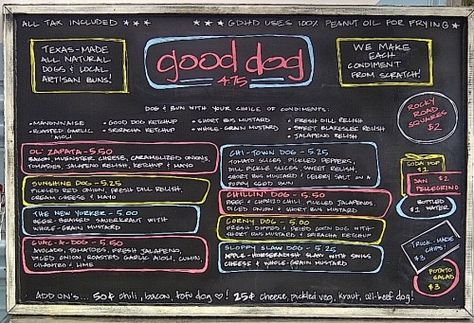 ALL TAX INCLUDED
GDHD USES 100% PEANUT OIL FOR FRYING
TEXAS-MADE
ALL NATURAL
DOGS & LOCAL
ARTISAN BUNS!
good dog
4.75
WE MAKE
EACH
CONDIMENT
FROM SCRATCH!
DOG & BUN WITH YOUR CHOICE OF CONDIMENTS:
• MAYONNAISE
• ROASTED GARLIC AIOLI
• GOOD DOG KETCHUP
• SRIRACHA KETCHUP
• SHORT BUS MUSTARD
• WHOLE-GRAIN MUSTARD
• FRESH DILL RELISH
• SWEET RELISH
• JALAPENO RELISH
ROCKY
ROAD
SQUARES
$2
OL' ZAPATA - 5.50
BACON, MUENSTER CHEESE, CARAMELIZED ONIONS,
TOMATOES, JALAPENO RELISH, KETCHUP & MAYO
SUNSHINE DOG - 5.25
PICKLED RED ONION, FRESH DILL RELISH,
CREAM CHEESE & MAYO
THE NEW YORKER - 5.00
BEER-BRAISED SAUERKRAUT WITH
WHOLE-GRAIN MUSTARD
GUAC-A-DOG - 5.50
AVOCADO, TOMATOES, FRESH JALAPENO,
DICED ONION, ROASTED GARLIC AIOLI, CUMIN,
CILANTRO & LIME
CHI-TOWN DOG - 5.25
TOMATO SLICES, PICKLED PEPPERS,
DILL PICKLE SLICES, SWEET RELISH,
SHORT BUS MUSTARD & CELERY SALT ON A
POPPY SEED BUN
CHILLIN' DOG - 5.50
BEEF & CHORIZO CHILI, PICKLED JALAPENOS,
DICED ONION & SHORT BUS MUSTARD
CORNY DOG - 5.00
FRESH DIPPED & FRIED CORN DOG WITH
SHORT BUS MUSTARD & SRIRACHA KETCHUP
SLOPPY SLAW DOG - 5.25
APPLE-HORSERADISH SLAW WITH SWISS
CHEESE & WHOLE-GRAIN MUSTARD
SODA POP
$1
SAN $2
PELLEGRINO
BOTTLED
$1 WATER
TRUCK-MADE
CHIPS!
$3
POTATO
SALAD
$3
ADD ON'S... 50¢ chili, bacon, tofu dog ♡! 25¢ cheese, pickled veg, kraut, all-beef dog!